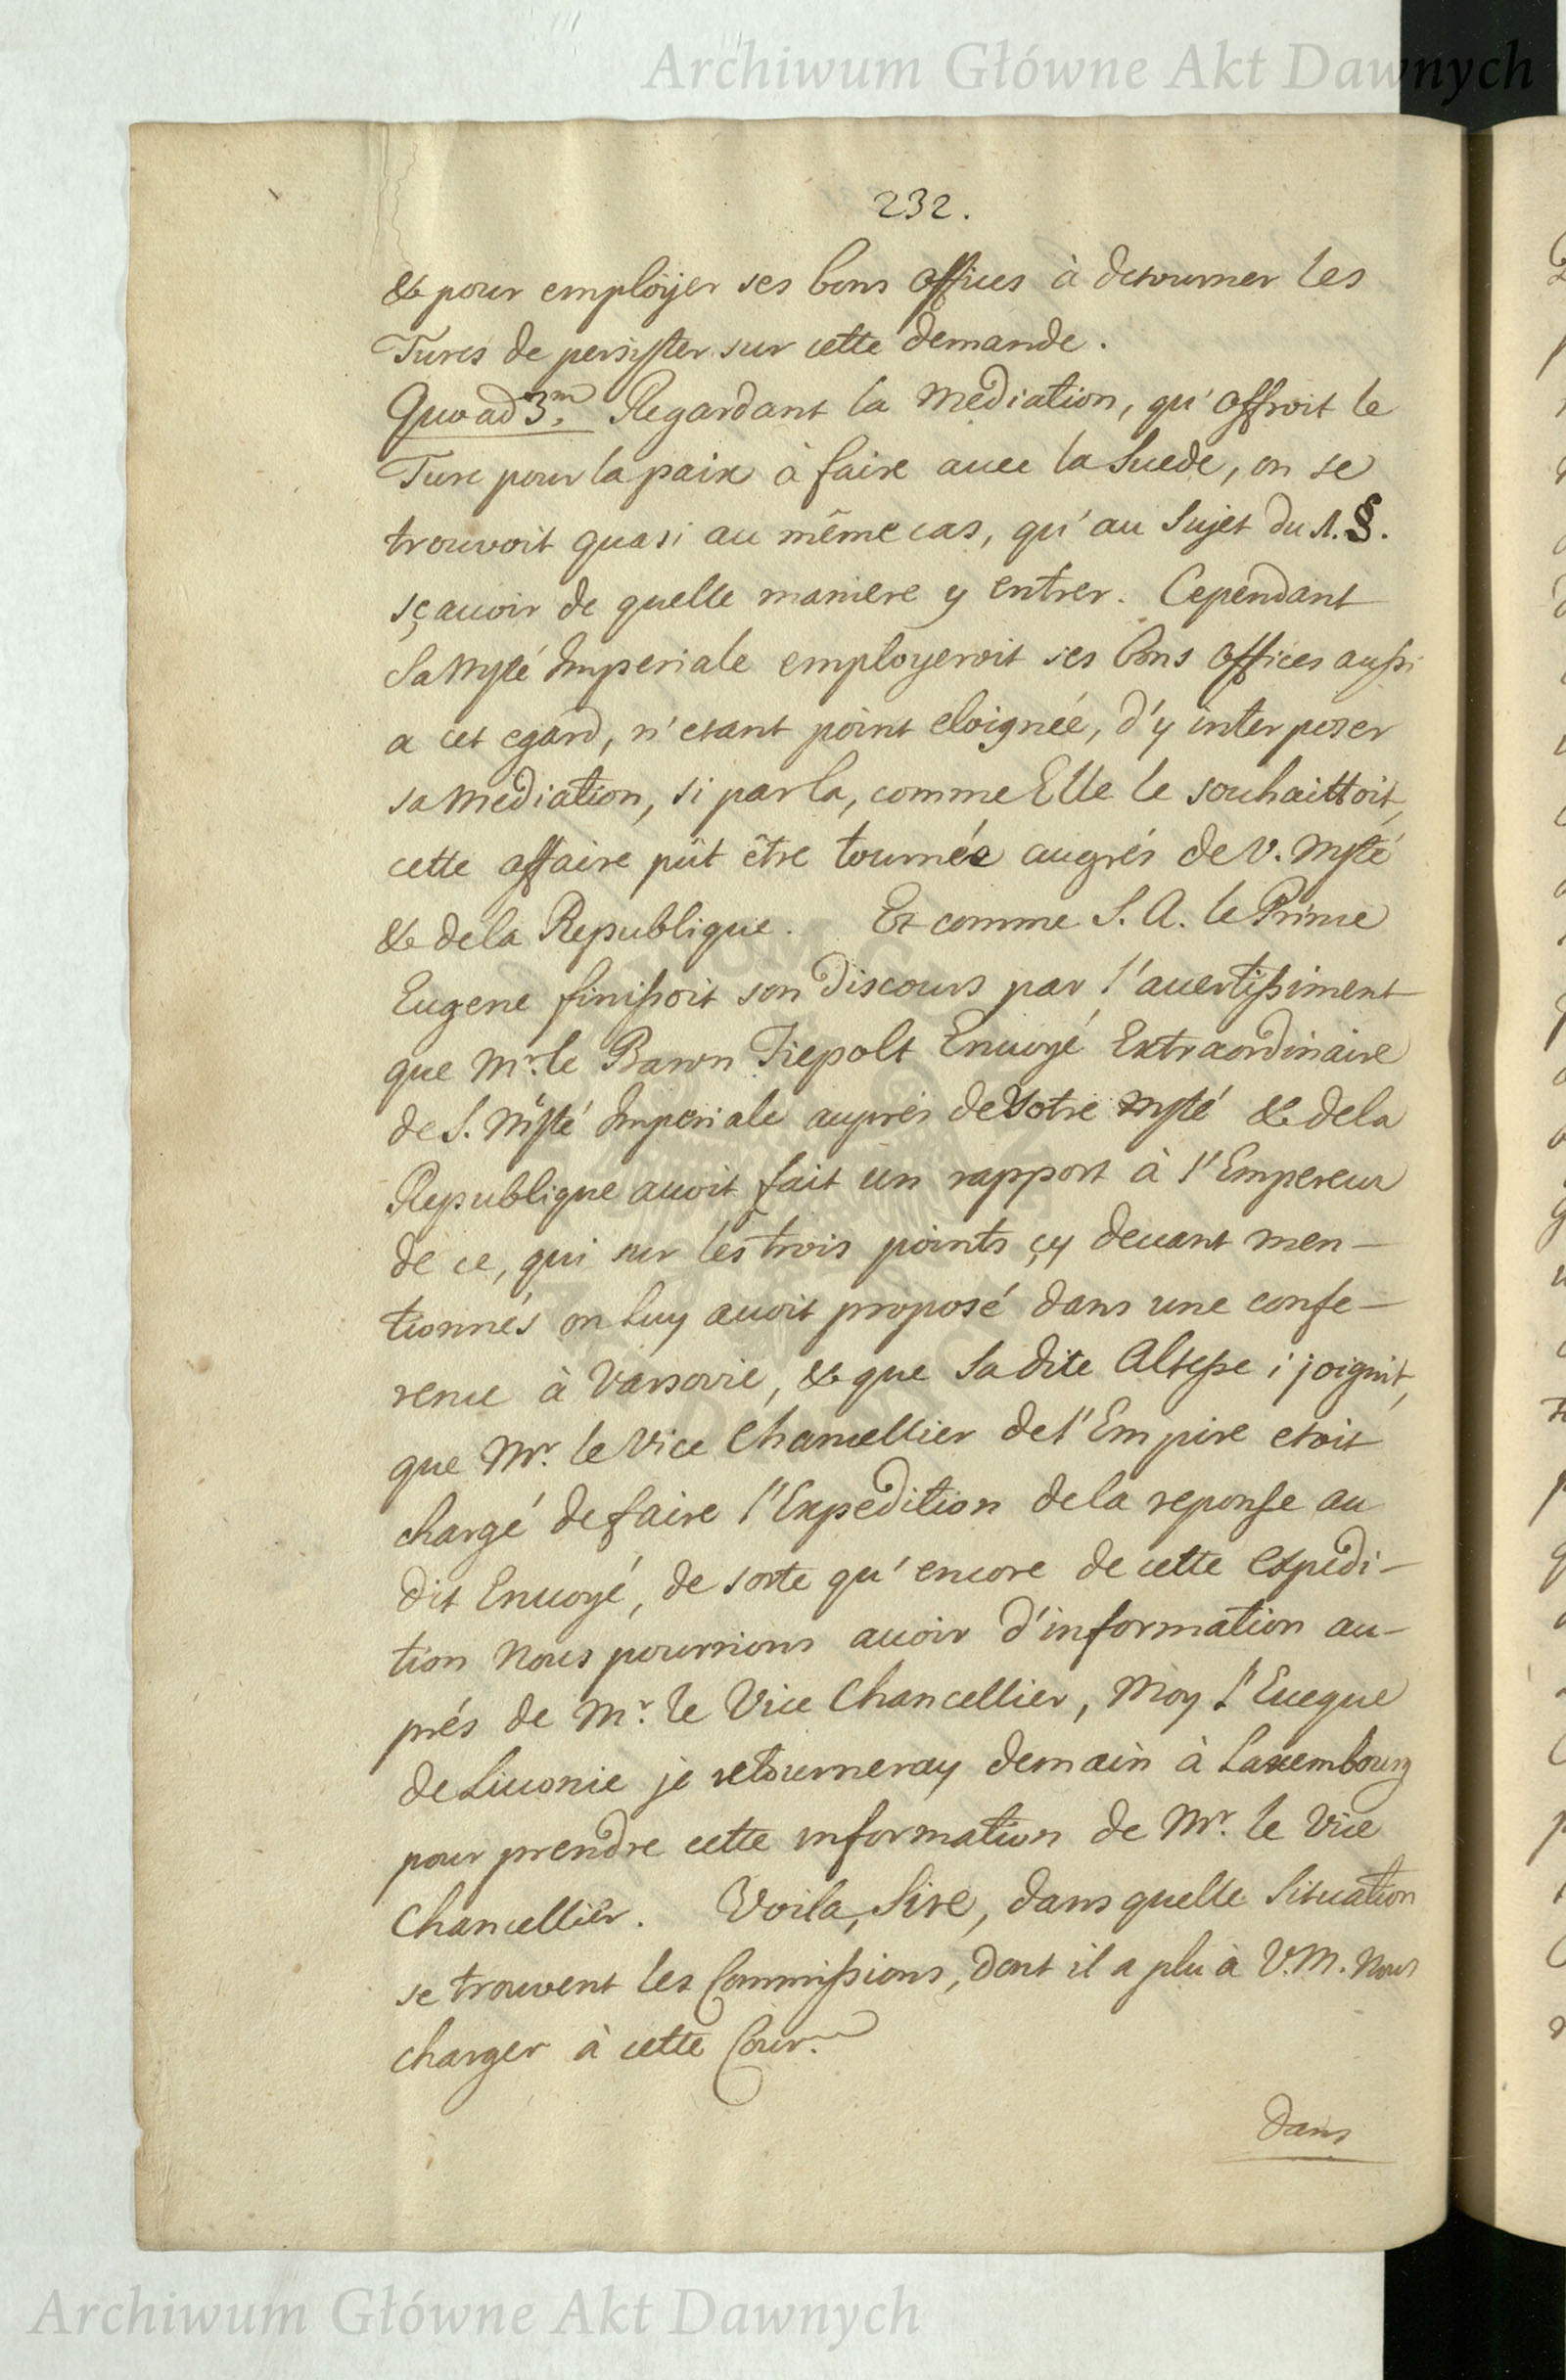 Archiwum Główne Akt Dawnych
232.
& pour employer ses bons offices à detourner les
Turcs de persister sur cette demande.
Quoad 3.m Regardant la mediation, qu'offroit le
Turc pour la paix à faire avec la Suede, on se
trouvoit quasi au même cas, qu'au Sujet du 1. §.
sçavoir de quelle maniere y entrer. Cependant
Sa Mgté Imperiale employeroit ses bons offices aussi
a cet egard, n'etant point eloignéé, d'y interposer
sa mediation, si par la, comme Elle le souhaittoit,
cette affaire pût être tournée augrés de V. Mgté
& de la Republique. Et comme S. A. le Prince
Eugene finissoit son discours par l'avertissiment
que Mr. le Baron Fiepolt Envoyé Extraordinaire
de S. Mgté Imperiale auprés de Votre Mgté & de la
Republique avoit fait un rapport à l'Empereur
de ce, qui sur les trois points çy devant men-
tionnés on luy avoit proposé dans une confe-
rence à Varsovie, & que Sa dite Altesse i joignit,
que Mr. le Vice Chancellier de l'Empire etoit
chargé de faire l'Expedition de la reponse au
dit Envoyé, de sorte qu'encore de cette expedi-
tion nous pourrions avoir d'information au-
prés de Mr. le Vice Chancellier, Moy l'Eveque
de Livonie je retourneray demain à Laxembourg
pour prendre cette information de Mr. le Vice
Chancellier. Voila, Sire, dans quelle Situation
se trouvent les Commissions, dont il a plu à V. M. nous
charger à cette Cour.
dans
Archiwum Główne Akt Dawnych